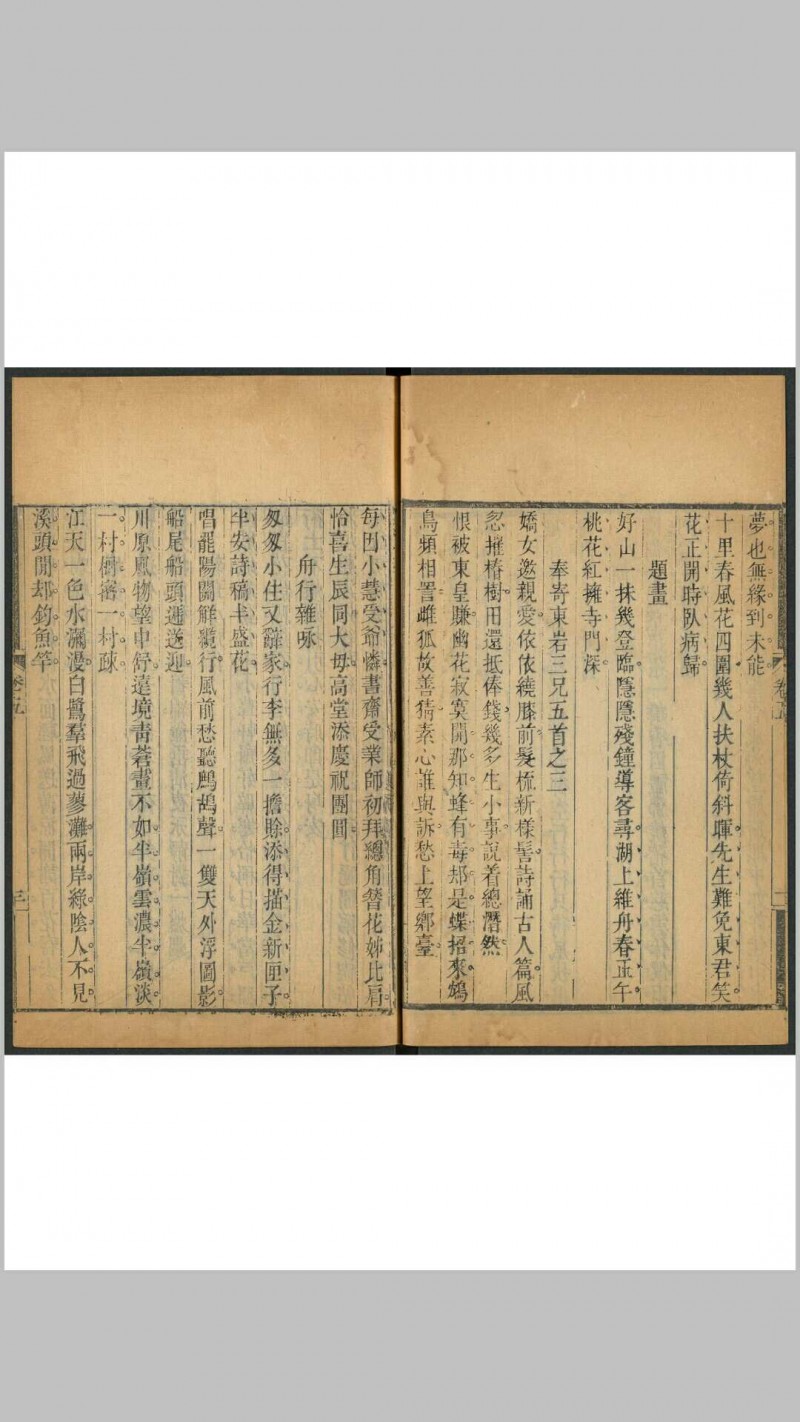 夢也無緣到未能
十里春風花四圍幾人扶杖倚斜暉先生難免東君笑
花正開時臥病歸
題畫
好山一抹幾登臨隱隱殘鐘導客尋湖上維舟春正午
桃花紅擁寺門深
奉寄東岩三兄五首之三
嬌女邀親愛依依繞膝前髮梳新樣髻詩誦古人篇風
忽摧椿樹田還抵俸錢幾多生小事說着總潸然
恨被東皇賺幽花寂寞開那知蜂有毒却是蝶招來鴆
鳥頻相詈雌狐故善猜素心誰與訴愁上望鄉臺
卷五
二
每因小慧受爺憐書齋受業師初拜總角簪花姊比肩
恰喜生辰同大母高堂添慶祝團圓
舟行雜咏
匆匆小住又辭家行李無多一擔賒添得描金新匣子
半安詩稿半盛花
唱罷陽關解纜行風前愁聽鷓鴣聲一雙天外浮圖影
船尾船頭遞送迎
川原風物望中舒遠境青蒼畫不如半嶺雲濃半嶺淡
一村樹密一村疎
江天一色水瀰漫白鷺羣飛過蓼灘兩岸綠陰人不見
溪頭閒却釣魚竿
卷五
三